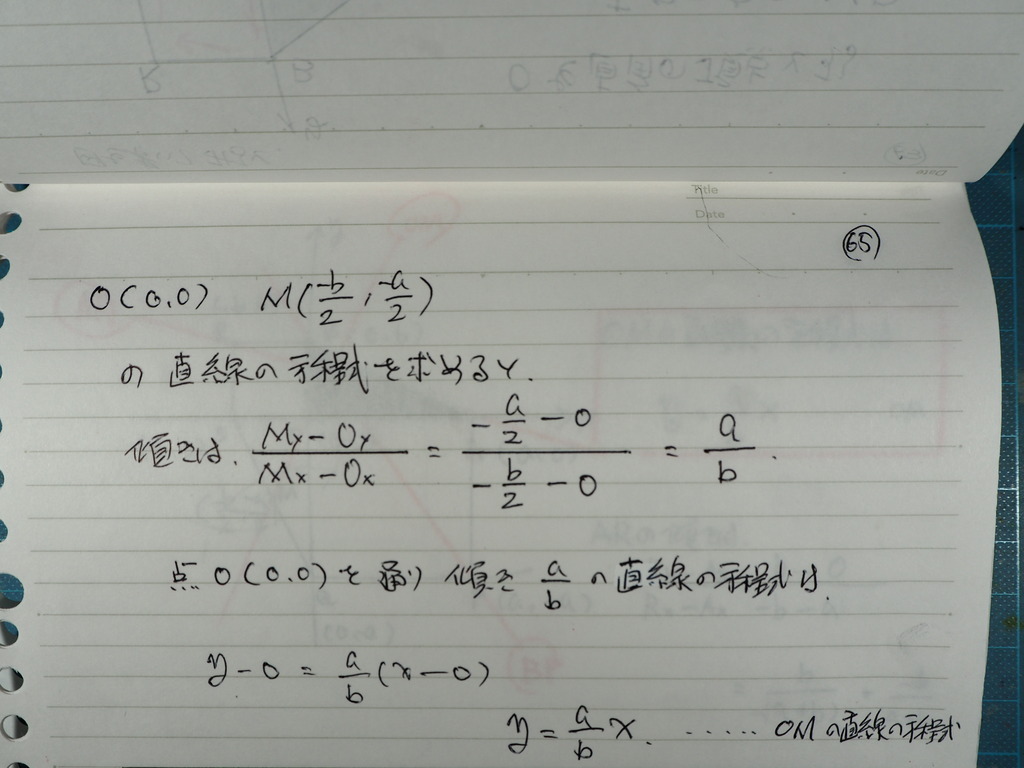 Title
Date
65
O(0,0) M(-b/2, -a/2)
の直線の方程式を求めると、
傾きは、 My-Oy/Mx-Ox = -a/2-0/-b/2-0 = a/b.
点O(0,0)を通り 傾き a/b の直線の方程式は、
y-0 = a/b(x-0)
y = a/b x. ‥‥‥ OMの直線の方程式